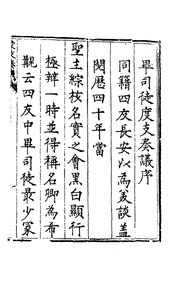 畢司徒度支奏議序
同籍四友長安以為美談蓋
閱歷四十年當
聖主綜核名實之會黑白顯行
極辯一時並得稱名卿為布
觀云四友中畢司徒最少冢